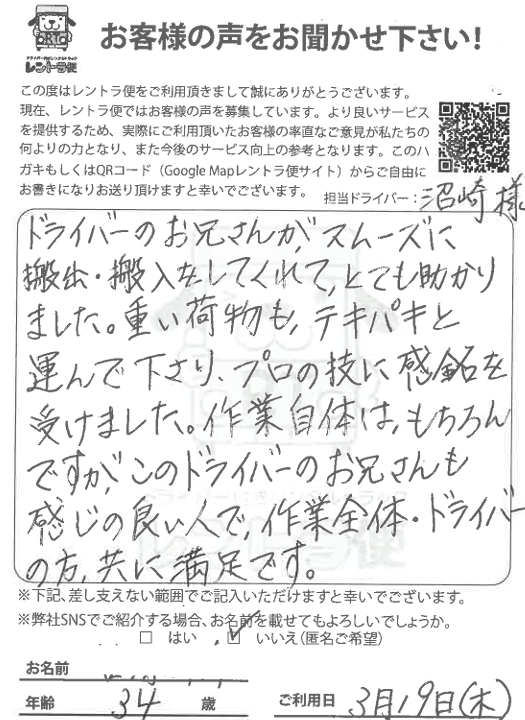 お客様の声をお聞かせ下さい!
レントラ便
この度はレントラ便をご利用頂きまして誠にありがとうございます。
現在、レントラ便ではお客様の声を募集しています。より良いサービス
を提供するため、実際にご利用頂いたお客様の率直なご意見が私たちの
何よりの力となり、また今後のサービス向上の参考となります。このハ
ガキもしくはQRコード（Google Mapレントラ便サイト）からご自由に
お書きになりお送り頂けますと幸いでございます。
担当ドライバー：沼崎様
ドライバーのお兄さんが、スムーズに
搬出・搬入をしてくれて、とても助かり
ました。重い荷物も、テキパキと
運んで下さり、プロの技に感銘を
受けました。作業自体は、もちろん
ですが、このドライバーのお兄さんも
感じの良い人で、作業全体・ドライバー
の方、共に満足です。
※下記、差し支えない範囲でご記入いただけますと幸いでございます。
※弊社SNSでご紹介する場合、お名前を載せてもよろしいでしょうか。
□ はい ☑ いいえ（匿名ご希望）
お名前
年齢 34 歳 ご利用日 3月19日(木)